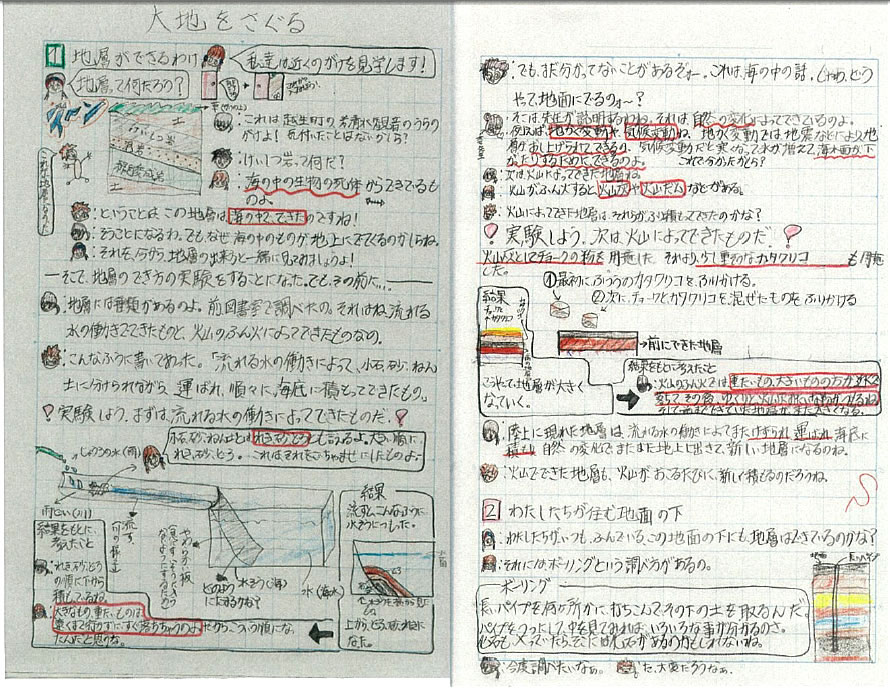 大地をさぐる
1 地層ができるわけ
私達は近くのがけを見学します!
地層って何だろう?
きれいな地層だなあ
土
けいそう岩
土
けいそう岩って何だ?
海の中の生物の死体からできてるも
のよ。
ということはこの地層は、海の中でできたのですね!
そうことになるわ。でもなぜ海の中のものが地上にでてくるのかしらね。
それを、今から、地層の出来方と一緒に見てみましょうよ!
そこで、地層のでき方の実験をすることになった。でもその前に…
地層には種類があるのよ。前図書室で調べたの。それはね、流れる
水の働きでできたものと、火山のふん火によってできたものなの。
こんなふうに書いてあった。「流れる水の働きによって、小石、砂、ねん
土に分けられながら、運ばれ、順々に海底に積もってできたもの。
!実験しよう。まずは、流れる水の働きによってできたものだ。!
小石、砂、ねん土はれき、砂、どろとも言うよ。大きい順に
れき、砂、どろ。これはそれをごちゃまぜにしたものよ
じょうろの水(雨)
雨どい(川)
流す前の様子
やわらかい板
どのようになるかな?
水そう(海)
水(海水)
結果
流すとこんなふうに
水そうにつもった。
上からどろ、砂、れきに
なった。
結果をもとに、
考えたこと
れき、砂、どろ
の順に下から
積もっているね。
大きなもの、重たいものは
遠くまで行かずにすぐ落ちちゃうのよ。だから、こういう順にな
ったんだと思うな。
でも、まだ分かってないことがあるぞォー。これは、海の中の話、じゃあ、どう
やって地面にでるのォ〜?
そこは先生が説明するわね。それは自然の変化によってできているのよ。
例えば地かく変動や、気候変動ね。地かく変動では地震などにより地
層がおし上げられてできるの。気候変動だと寒くなって氷が増えて海水面が下
がったりするためにできるのよ。これで分かったかしら?
次は火山によってできた地層ね。
火山がふん火すると火山灰や火山だんなどがある。
火山によってできた地層は、それらがふり積もってできたのかな?
!実験しよう。次は、火山によってできたものだ!
火山灰としてチョークの粉を用意した。それより少し重そうなカタクリコも用意
した。
①最初にふつうのカタクリコをふりかける
②次に、チョークとカタクリコを混ぜたものをふりかける
結果
チョーク
カタクリコ
→前にできた地層
こうやって地層が大きく
なっていく。
結果をもとに考えたこと
火山のふん火では重たいもの、大きいものの方が速く
落ちて、その後、ゆっくりと火山灰みたいな粉がつもるね。
陸上に現れた地層は、流れる水の働きによってまたけずられ、運ばれ、海底に
積もり、自然の変化でまたまた地上に出てきて、新しい地層になるのね。
火山でできた地層も、火山がおこるたびに、新しく積もるのだろうね。
2 わたしたちが住む地面の下
わたしたちがいつも、ふんでいる、この地面の下にも、地層はできているのかな?
それにはボーリングという調べ方があるの。
ボーリング
長いパイプを何か所かに、打ちこんでその下の土を取るんだ。
パイプをつっこして、中を見てみれば、いろいろな事が分かるのさ。
地面
今度調べたいなぁ。